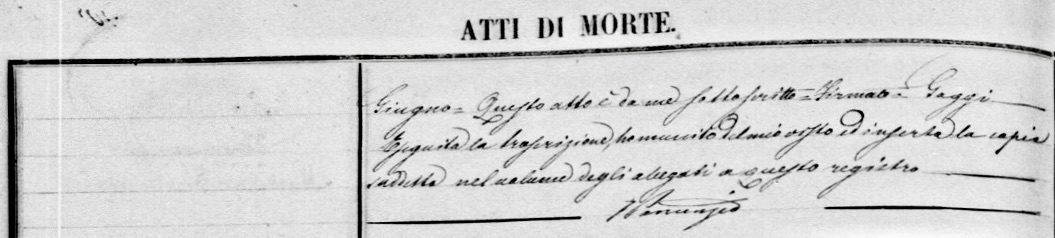 ATTI DI MORTE.
Giugno = Questo atto è da me sottoscritto = Firmato = Gaggi
Eseguita la trascrizione, ho munito del mio visto ed inserta la copia
suddetta nel volume degli allegati a questo registro